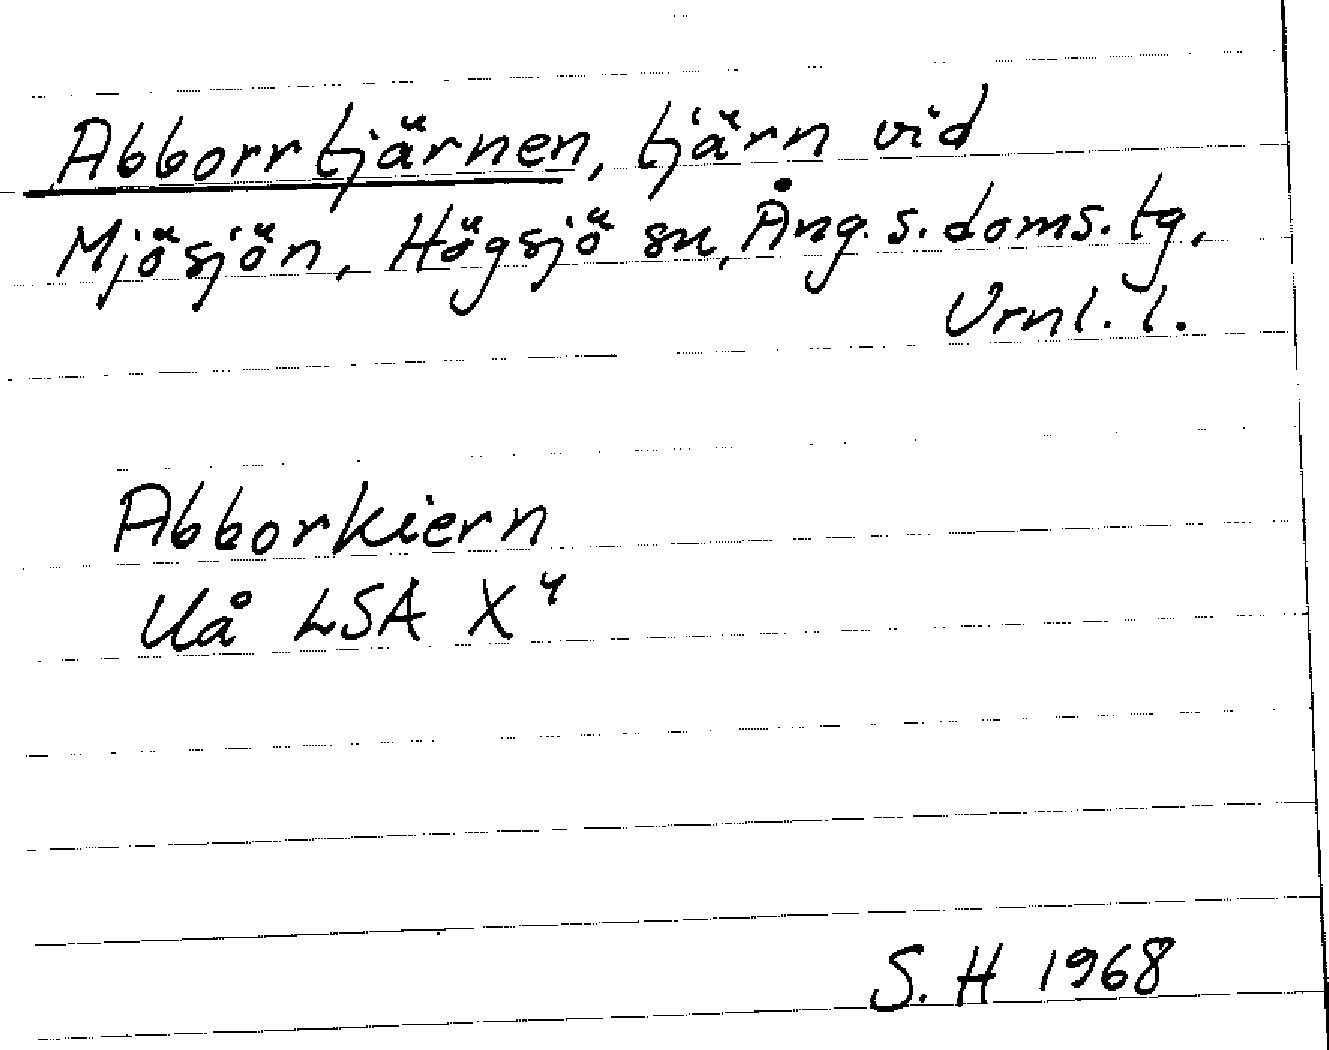 Abborrtjärnen, tjärn vid
Mjösjön, Högsjö sn, Ång. s. doms. tg,
Vrnl. l.
Abborkiern
Uå LSA X 4
S. H 1968